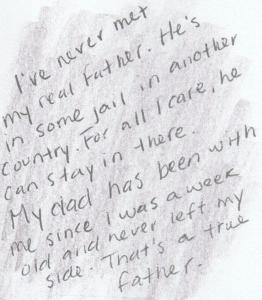 I've never met
my real father. He's
in some jail in another
country. For all I care, he
can stay in there.
My dad has been with
me since I was a week
old and never left my
side. That's a true
father.